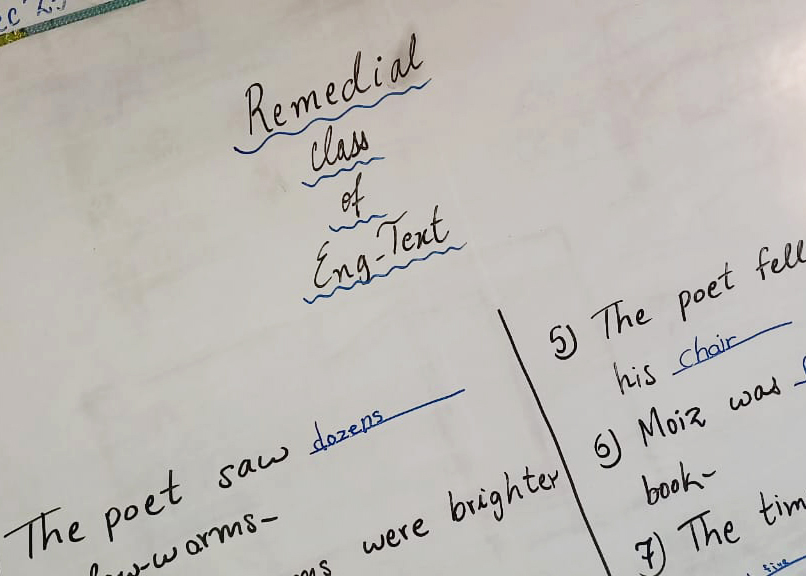 Remedial
class
of
Eng-Text
The poet saw dozens
were brighter
5) The poet fell
his chair
6) Moiz was
book-
7) The
five